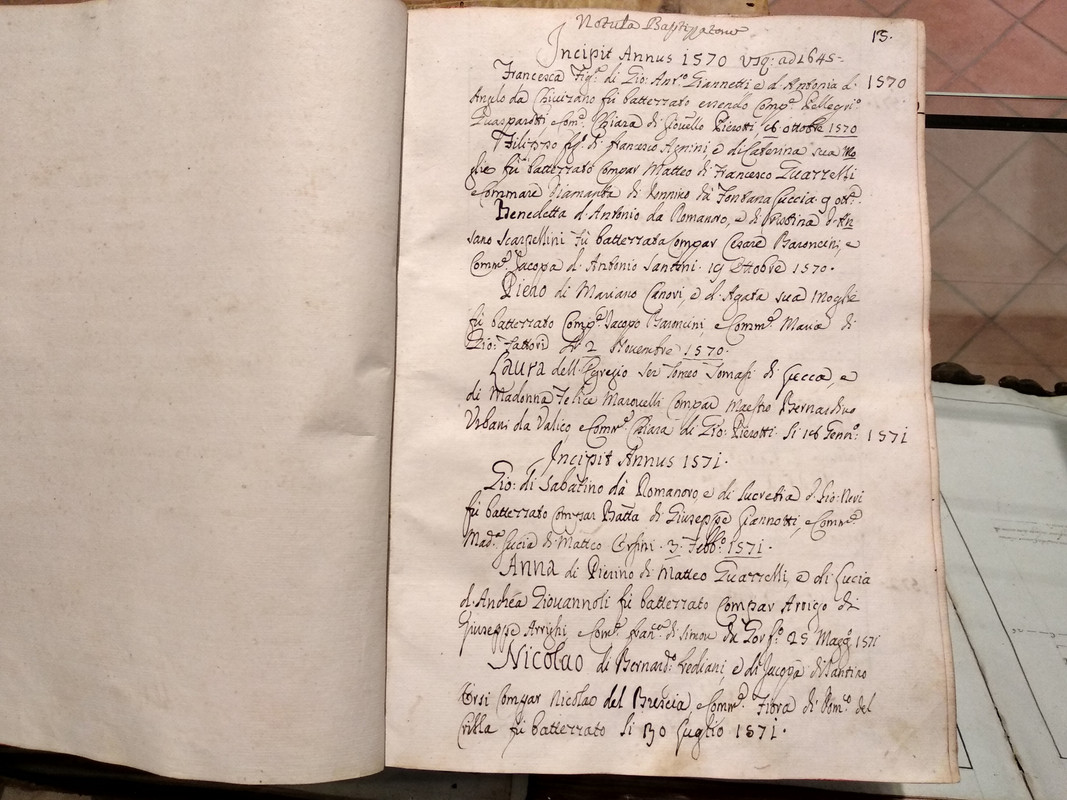 Notula Baptizatorum
13.
Incipit Annus 1570 Vsq: ad 1645-
Francesca Figª. di Gio: Antº. Giannotti e d. Antonia d. 1570
Angelo da fù battezzato essendo Compº. Pellegriº.
Guasparotti e Comª. Chiara di Pierotti, 16 ottobre 1570
Filippo figº. di francesco Agnini e di Caterina sua Mo
glie fù battezzato Compar Matteo di Francesco Guazzelli
e Commare Diamanta di da Fontana Luccia 9 ottº.
Benedetta d. Antonio da Romanoro, e di d. An
sano Scarpellini fù battezzata Compar Cesare Baroncini, e
Commª. Jacopa d. Antonio Santini. 19 Ottobre 1570.
Piero di Mariano Canovi, e d. Agata sua Moglie
fù battezzato Compº. Jacopo Baroncini, e Commª. Maria di
Gio: Fattori 2 Novembre 1570.
Laura dell Egregio Ser Tomeo Tomasi di Lucca, e
di Madonna Felice Marovelli Compar Maestro Bernardino
Urbani da Valico e Commª. Chiara di Gio: Pierotti. li 16 Gennº. 1571
Incipit Annus 1571.
Gio: di Sabatino da Romanoro, e di Lucretia d. Gio: Neri
fù battezzato Compar Batta di Giuseppe Giannotti, e Commª
Madª. Lucia di Matteo Orsini. 3. Febbº. 1571.
Anna di Pierino di Matteo Guazzelli, e di Lucia
d. Andrea Giovannoli fù battezzato Compar Arrigo di
Giuseppe Arrighi, e Comª. franᶜª. di Simon da 25 Maggº. 1571
Nicolao di Bernardº. Lediani, e di Jacopa di Santino
Orsi Compar Nicolao del Brescia, e Commª. Fiora di Domº. del
fù battezzato li 30 Luglio 1571.